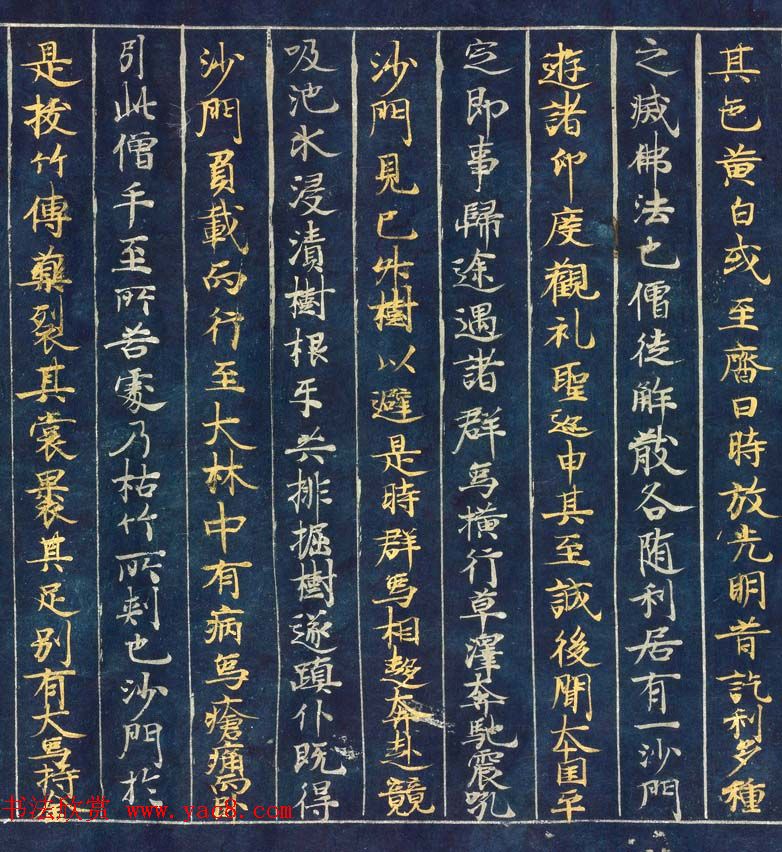 其色黃白或至齋日時放光明昔訖利多種
之滅佛法也僧徒解散各随利居有一沙門
遊諸印度觀礼聖迹申其至誠後聞本国平
定即事歸途遇諸群象橫行草澤奔馳震吼
沙門見已升樹以避是時群象相趍奔赴競
吸池水浸漬樹根牙共排掘樹遂蹎仆既得
沙門負載而行至大林中有病象瘡痛而卧
引此僧手至所苦處乃枯竹所刺也沙門於
是拔竹傳藥裂其裳裹其足別有大象持
书法欣赏 www.yac8.com